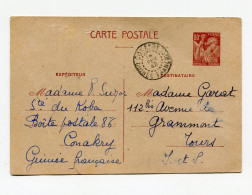 CARTE POSTALE
EXPÉDITEUR
DESTINATAIRE
Madame P. Suzor
Sté du Koba
Boîte postale 86
Conakry
Guinée française
Madame Garat
112 bis Avenue de
Grammont
Tours
I. et L.